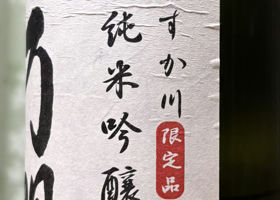 すか川
限定品
純米吟醸